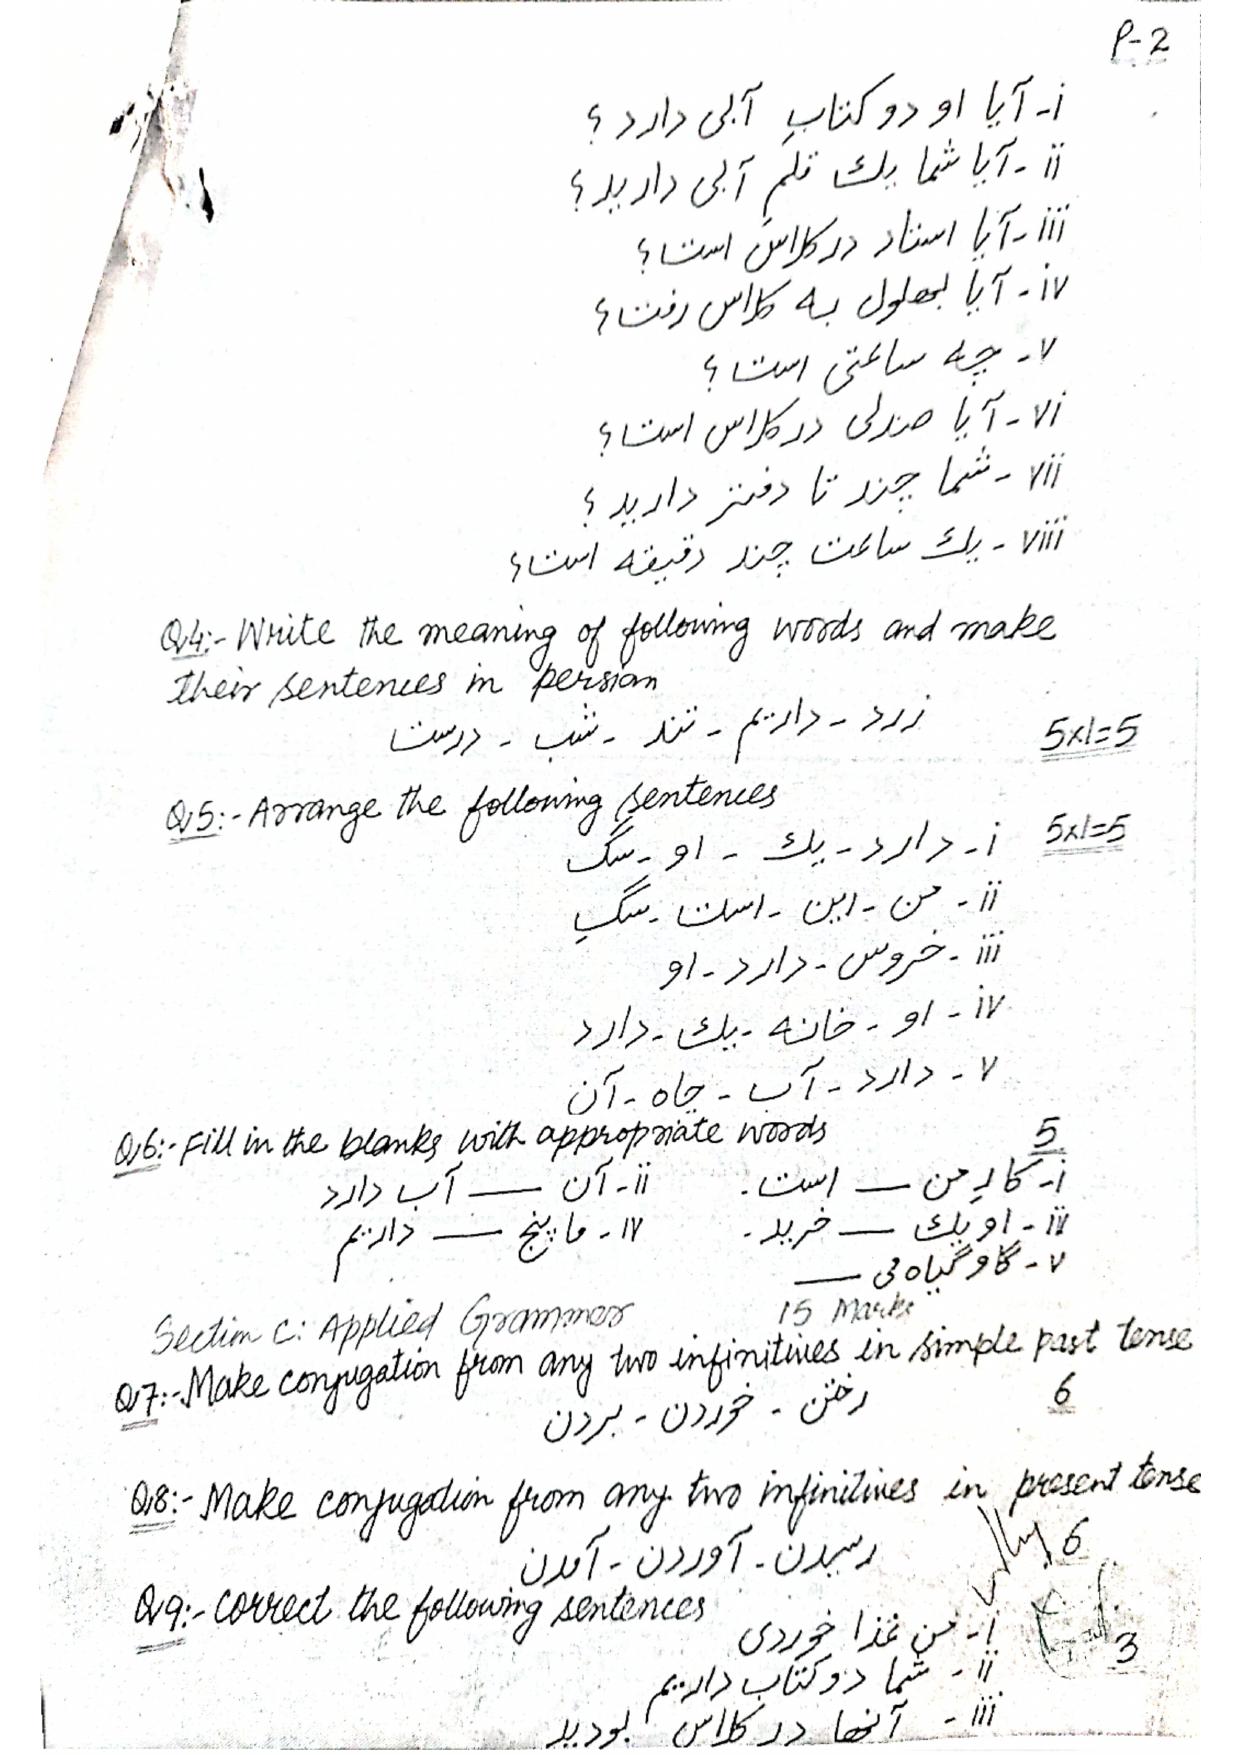 P-2
i- آیا او دو کتابِ آبی دارد؟
ii- آیا شما یک قلمِ آبی دارید؟
iii- آیا استاد در کلاس است؟
iv- آیا بھلول به کلاس رفت؟
v- چه ساعتی است؟
vi- آیا صندلی در کلاس است؟
vii- شما چند تا دفتر دارید؟
viii- یک ساعت چند دقیقه است؟
Q4:- Write the meaning of following words and make
their sentences in persian
زرد - داریم - تند - شب - درست 5x1=5
Q5:- Arrange the following sentences
i- دارد - یک - او - سگ 5x1=5
ii- من - این - است - سگِ
iii- خروس - دارد - او
iv- او - خانه - یک - دارد
v- دارد - آب - چاه - آن
Q6:- Fill in the blanks with appropriate words 5
i- کارِ من — است. ii- آن — آب دارد
iii- او یک — خرید. iv- ما پنج — داریم
v- گاو گیاه می —
Section C: Applied Grammar 15 Marks
Q7:- Make conjugation from any two infinitives in simple past tense
رفتن - خوردن - بردن 6
Q8:- Make conjugation from any two infinitives in present tense
رسیدن - آوردن - آمدن 6
Q9:- Correct the following sentences
i- من غذا خوردی 3
ii- شما دو کتاب داریم
iii- آنھا در کلاس بودید